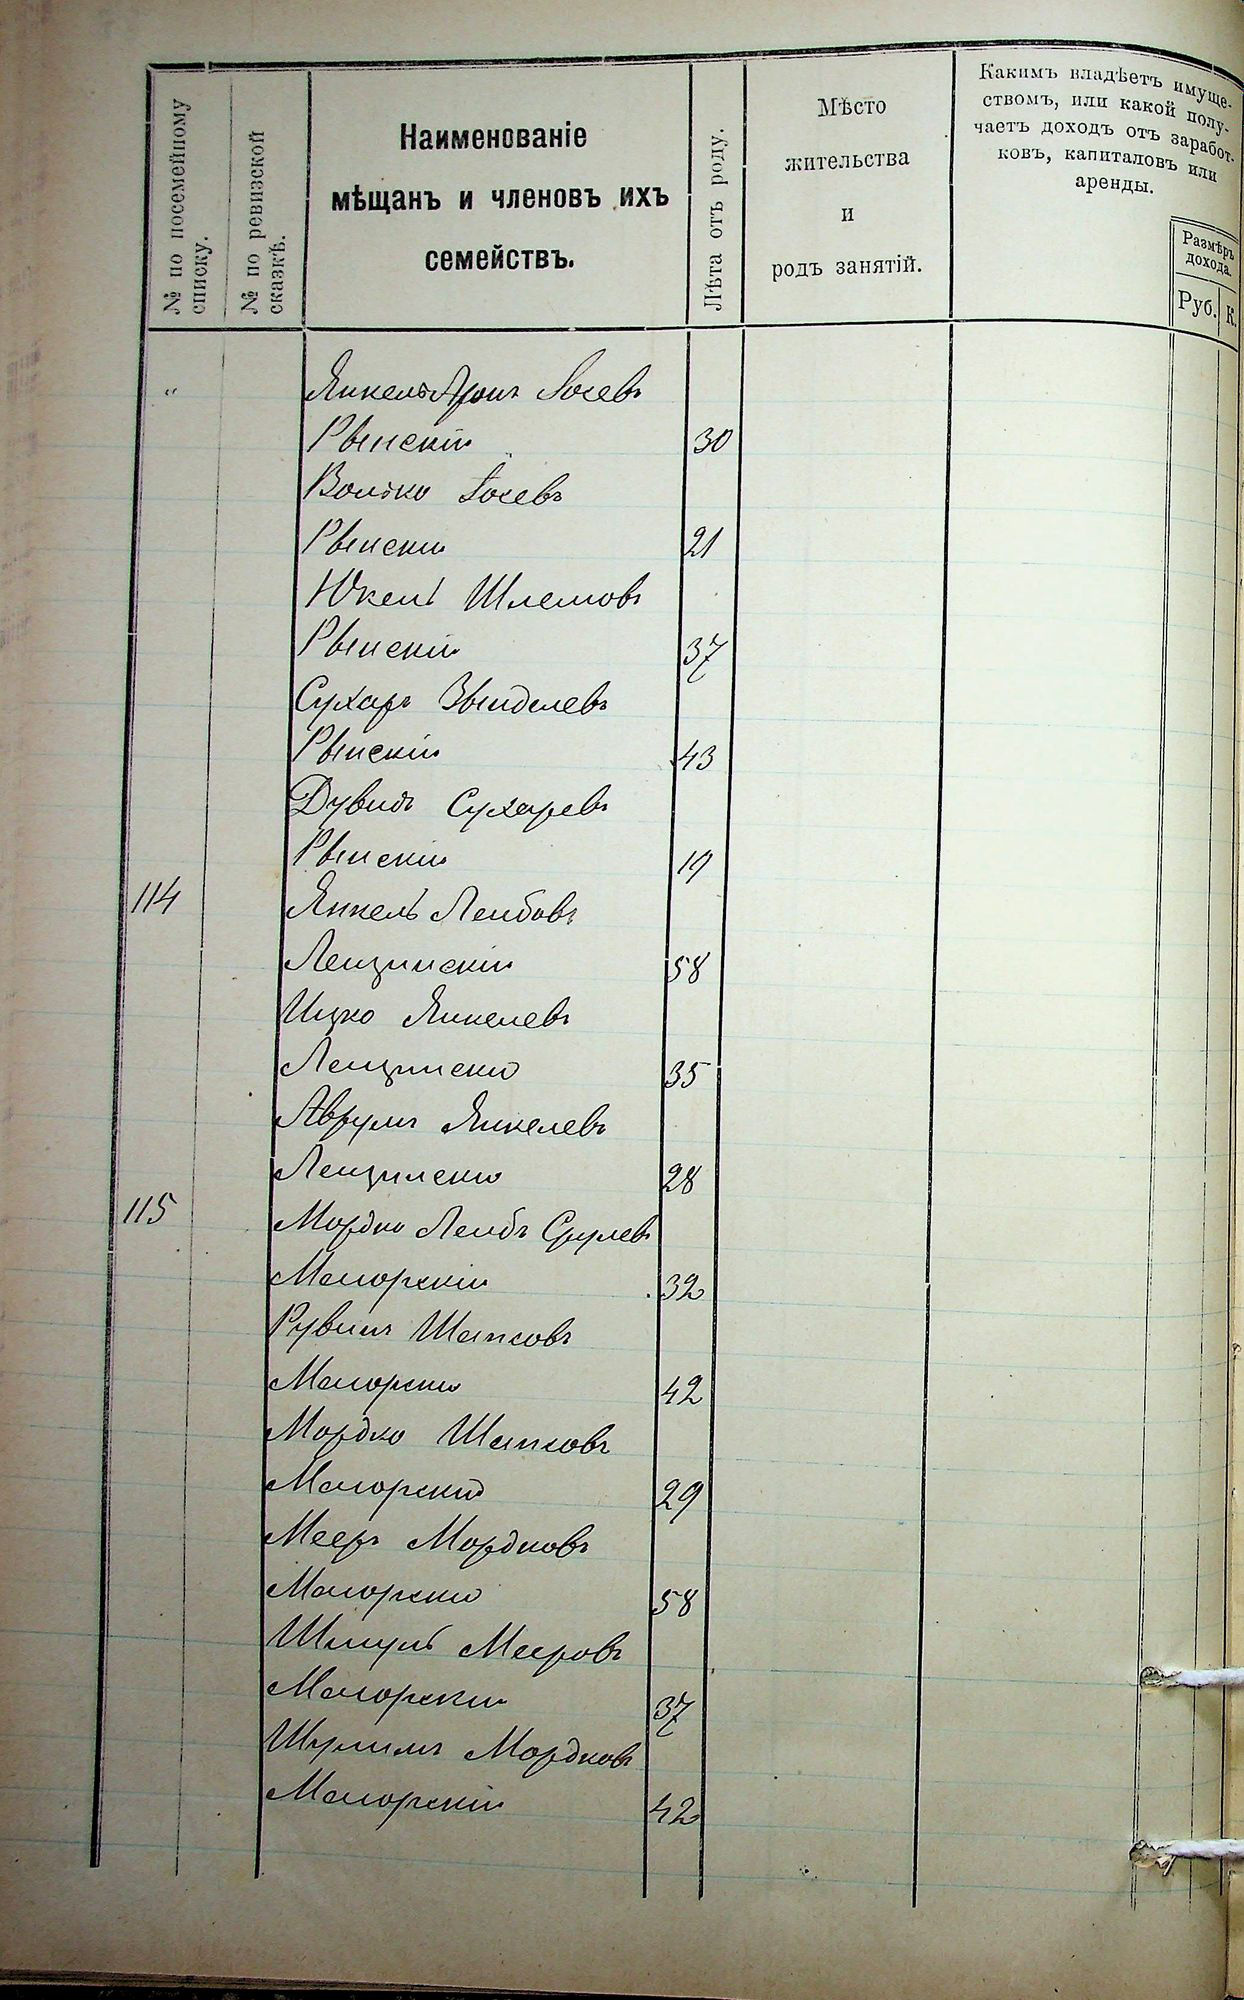 № по посемейному
списку.
№ по ревизской
сказкѣ.
Наименованіе
мѣщанъ и членовъ ихъ
семействъ.
Лѣта отъ роду.
Мѣсто
жительства
и
родъ занятій.
Какимъ владѣетъ имуще-
ствомъ, или какой полу-
чаетъ доходъ отъ заработ-
ковъ, капиталовъ или
аренды.
Размѣръ
дохода.
Руб. К.
" Янкель Аронъ Іосевъ
Рынскій 30
Волько Іосевъ
Рынскій 21
Юкель Шлемовъ
Рынскій 37
Сухаръ Звинделевъ
Рынскій 43
Дувидъ Сухаревъ
Рынскій 19
114 Янкель Лейбовъ
Лещинскій 58
Ицко Янкелевъ
Лещинскій 35
Аврумъ Янкелевъ
Лещинскій 28
115 Мордко Лейбъ Срулевъ
Маіорскій 32
Рувинъ Шапсовъ
Маіорскій 42
Мордко Шапсовъ
Маіорскій 29
Мееръ Мордковъ
Маіорскій 58
Шмуль Мееровъ
Маіорскій 37
Шулимъ Мордковъ
Маіорскій 42